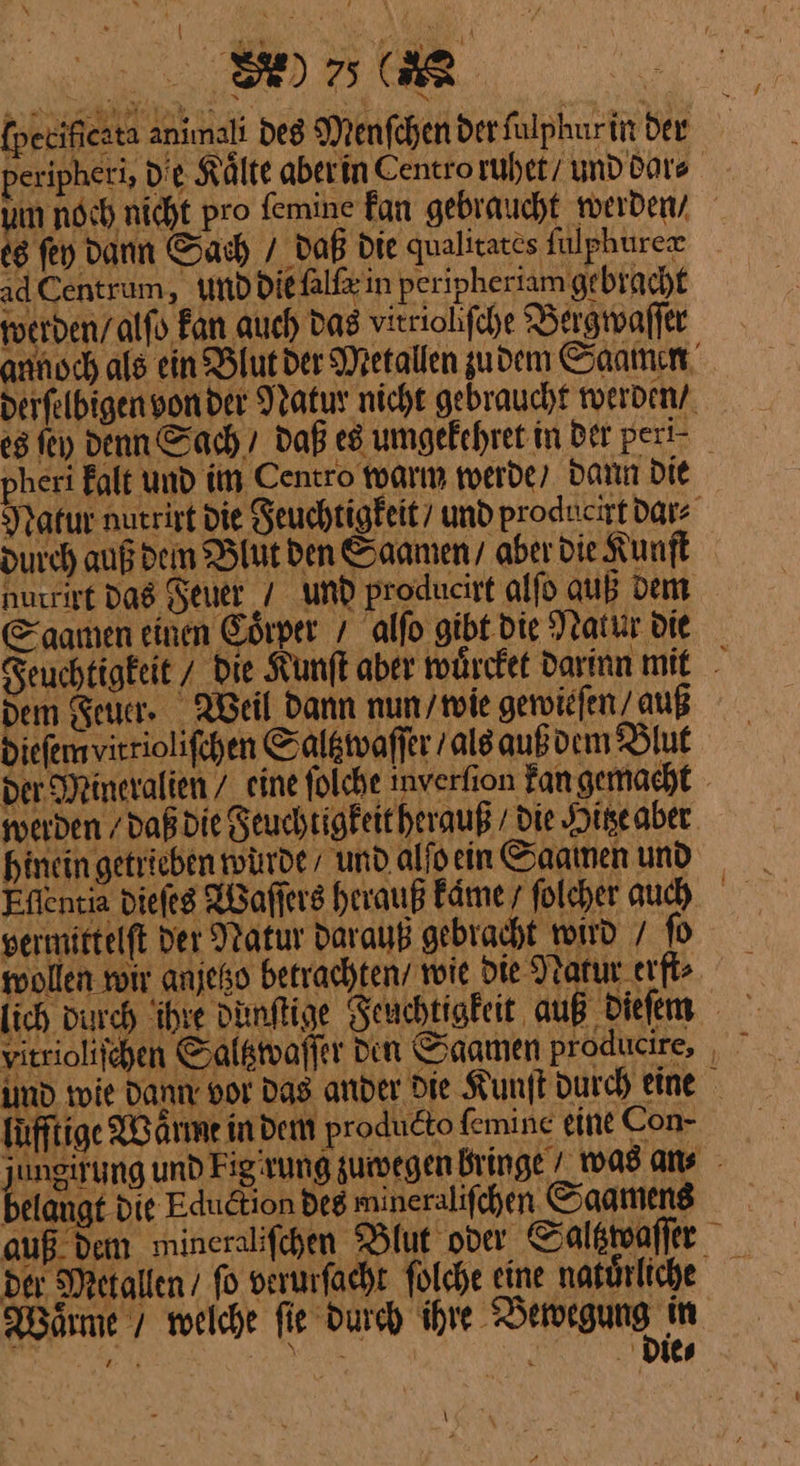 ) 75 (
ſpecificata animali des Menſchen der ſulphur in der
peripheri, die Kaͤlte aber in Centro ruhet / und dar⸗
um noch nicht pro ſemine kan gebraucht werden /
es ſey dann Sach / daß die qualitates ſulphureæ
ad Centrum, und die ſalſæ in peripheriam gebracht
werden / alſo kan auch das vitrioliſche Bergwaſſer
annoch als ein Blut der Metallen zu dem Saamen
derſelbigen von der Natur nicht gebraucht werden /
es ſey denn Sach / daß es umgekehret in der peri-
pheri kalt und im Centro warm werde / dann die
Natur nutrirt die Feuchtigkeit / und producirt dar⸗
durch auß dem Blut den Saamen / aber die Kunſt
nutrirt das Feuer / und producirt alſo auß dem
Saamen einen Coͤrper / alſo gibt die Natur die
Feuchtigkeit / die Kunſt aber wuͤrcket darinn mit
dem Feuer. Weil dann nun / wie gewieſen / auß
dieſem vitrioliſchen Saltzwaſſer / als auß dem Blut
der Mineralien / eine ſolche inverſion kan gemacht
werden / daß die Feuchtigkeit herauß / die Hitze aber
hinein getrieben wuͤrde / und alſo ein Saamen und
Eſſentia dieſes Waſſers herauß kaͤme / ſolcher auch
vermittelſt der Natur darauß gebracht wird / ſo
wollen wir anjetzo betrachten / wie die Natur erſt⸗
lich durch ihre duͤnſtige Feuchtigkeit auß dieſem
vitrioliſchen Saltzwaſſer den Saamen producire,
und wie dann vor das ander die Kunſt durch eine
luͤfftige Waͤrme in dem producto ſemine eine Con-
jungirung und Figirung zuwegen bringe / was an⸗
belangt die Eduction des mineraliſchen Saamens
auß dem mineraliſchen Blut oder Saltzwaſſer
der Metallen / ſo verurſacht ſolche eine natuͤrliche
Waͤrme / welche ſie durch ihre Bewegung in
die⸗